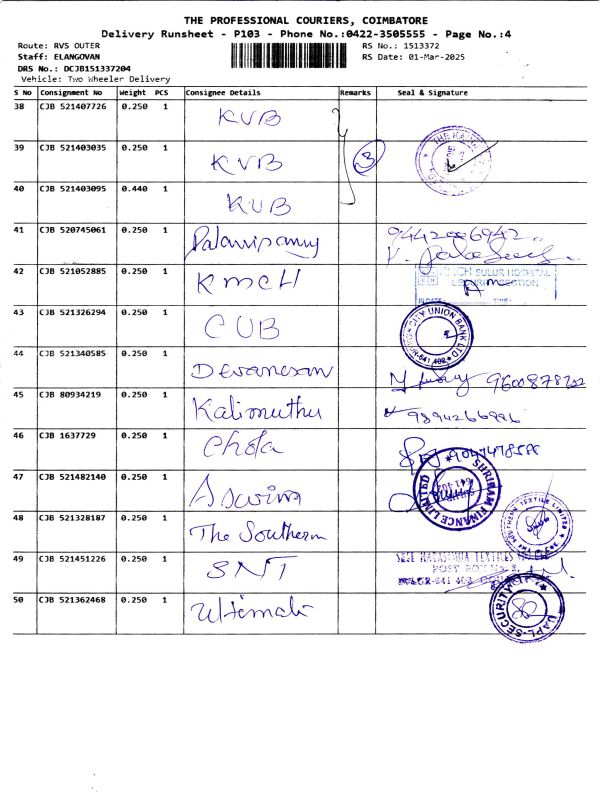 THE PROFESSIONAL COURIERS, COIMBATORE
Delivery Runsheet - P103 - Phone No.:0422-3505555 - Page No.:4
Route: RVS OUTER
RS No.: 1513372
Staff: ELANGOVAN
RS Date: 01-Mar-2025
DRS No.: DCJB151337204
Vehicle: Two Wheeler Delivery
S No Consignment No Weight PCS Consignee Details Remarks Seal & Signature
38 CJB 521407726 0.250 1 KVB
39 CJB 521403035 0.250 1 KVB 3
40 CJB 521403095 0.440 1 KVB
41 CJB 520745061 0.250 1 Palanisamy 9442006942
42 CJB 521052885 0.250 1 KMCH SULUR HOSPITAL
43 CJB 521326294 0.250 1 CUB CITY UNION BANK LTD
44 CJB 521340585 0.250 1 Devanesan 9600878722
45 CJB 80934219 0.250 1 Kalimuthu 9894266996
46 CJB 1637729 0.250 1 Chola
47 CJB 521482140 0.250 1 Aswini SHRIRAM FINANCE LIMITED
48 CJB 521328187 0.250 1 The Southern SOUTHERN TEXTILE LIMITED
49 CJB 521451226 0.250 1 SNT
50 CJB 521362468 0.250 1 Ultimate UAPL-SECURITY